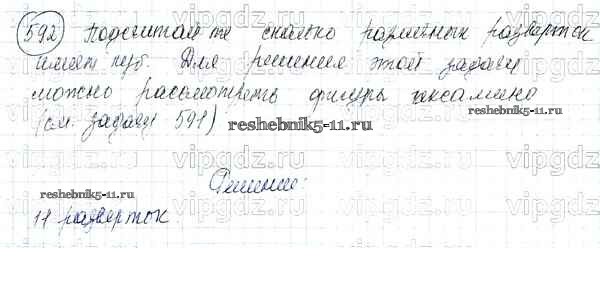 592 Подсчитайте сколько различных разверток
имеет куб. Для решения этой задачи
можно рассмотреть фигуры гексамино
(см. задачу 591) reshebnik5-11.ru
Решение:
reshebnik5-11.ru
11 разверток
vipgdz.ru